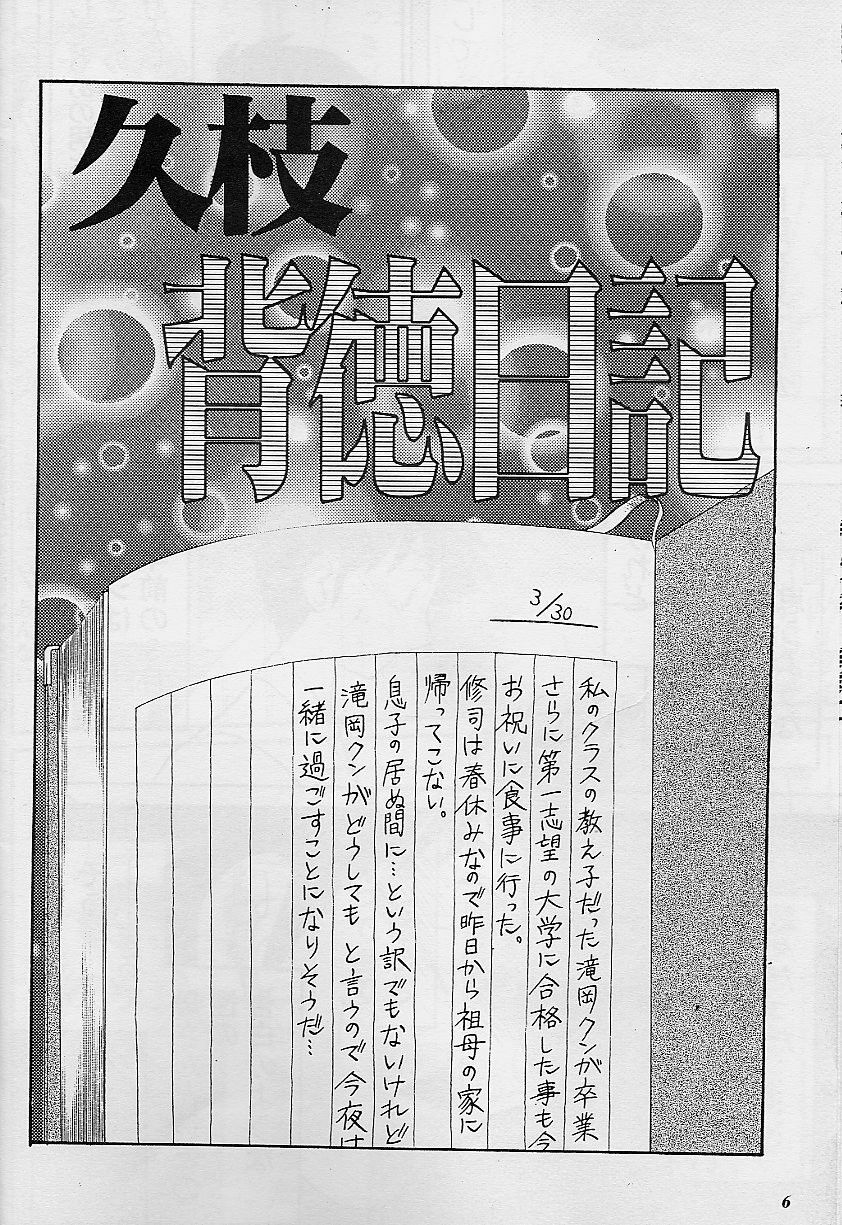 久枝
背徳日記
3/30
私のクラスの教え子だった滝岡クンが卒業
さらに第一志望の大学に合格した事も今
お祝いに食事に行った。
修司は春休みなので昨日から祖母の家に
帰ってこない。
息子の居ぬ間に…という訳でもないけれど
滝岡クンがどうしても と言うので今夜は
一緒に過ごすことになりそうだ…
6